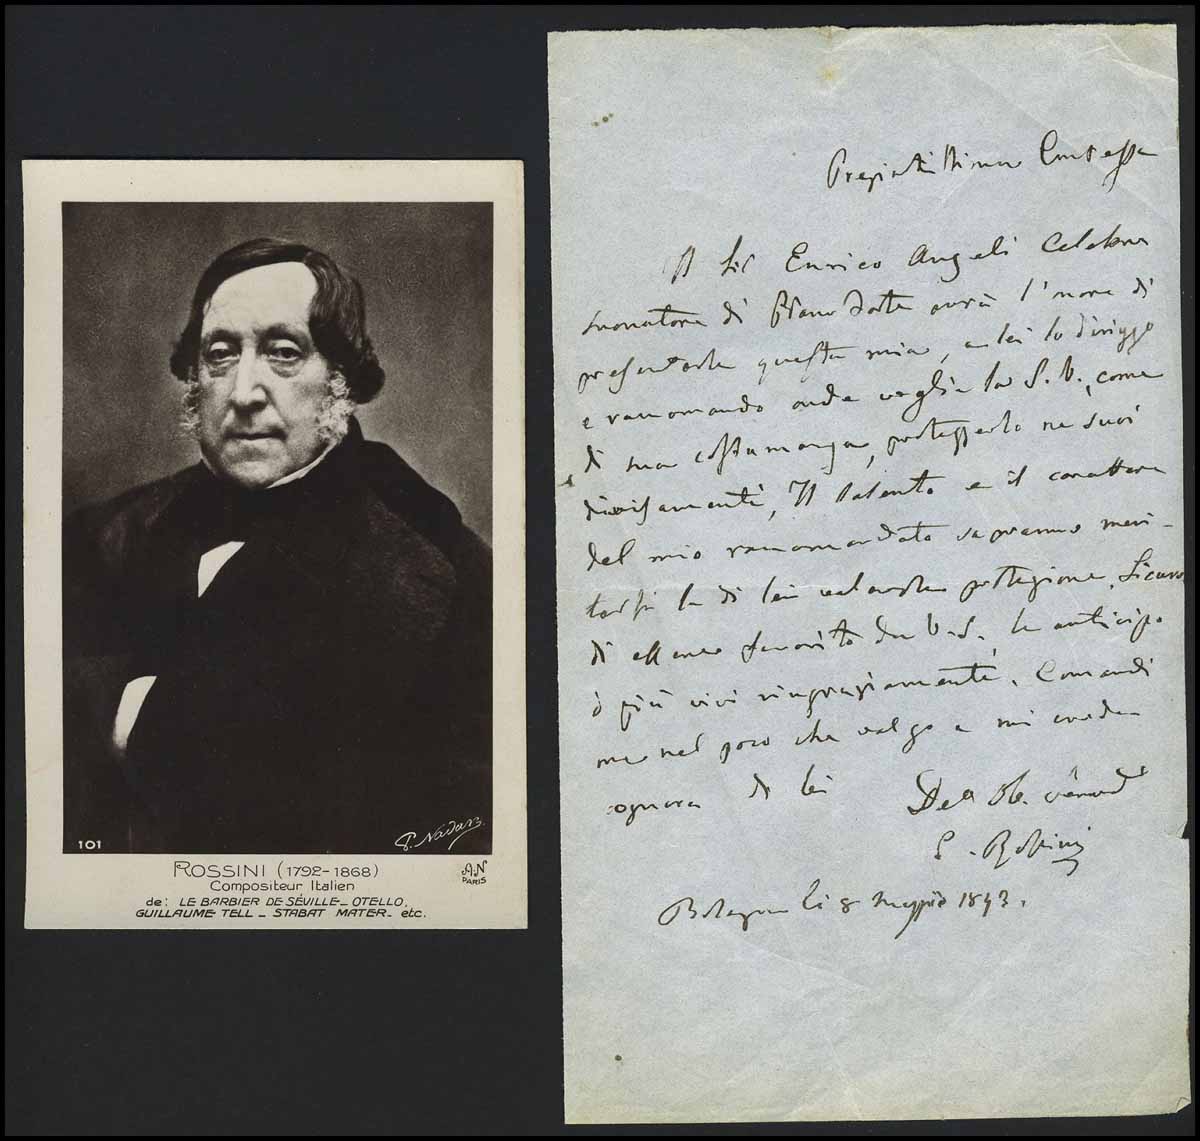 101
P. Nadar
ROSSINI (1792-1868)
Compositeur Italien
de: LE BARBIER DE SÉVILLE_ OTELLO,
GUILLAUME TELL _ STABAT MATER_ etc.
A.N
PARIS
Pregiatissima Contessa
Il Sig Enrico Angeli Celebre
suonatore di Piano Forte avrà l'onore di
presentarle questa mia, a lei lo dirigo
e raccomando onde voglia la S. V., come
di sua costumanza, proteggerlo ne suoi
Il talento e il carattere
del mio raccomandato sapranno meri-
tarsi la di lei valevole protezione. Sicuro
di essere favorito da V. S. le anticipo
i più vivi ringraziamenti. Comandi
me nel poco che valgo e mi creda
ognora di lei
Dev
G. Rossini
Bologna li 8 Maggio 1843.